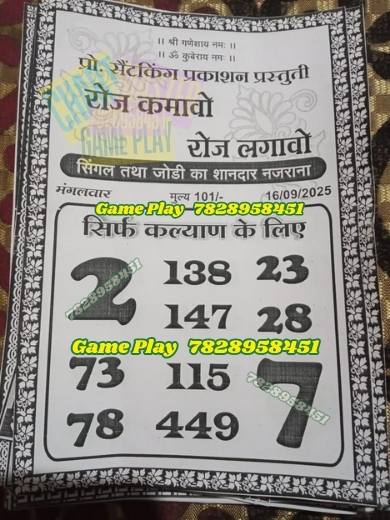 ।। श्री गणेशाय नमः ।।
।। ॐ कुबेराय नमः ।।
प्रो. सैंटकिंग प्रकाशन प्रस्तुती
रोज कमावो
रोज लगावो
CHART
GAME PLAY
सिंगल तथा जोडी का शानदार नजराना
मंगलवार मूल्य 101/- 16/09/2025
Game Play 7828958451
सिर्फ कल्याण के लिए
2 138 23
7828958451
147 28
Game Play 7828958451
73 115 7
7828958451
78 449